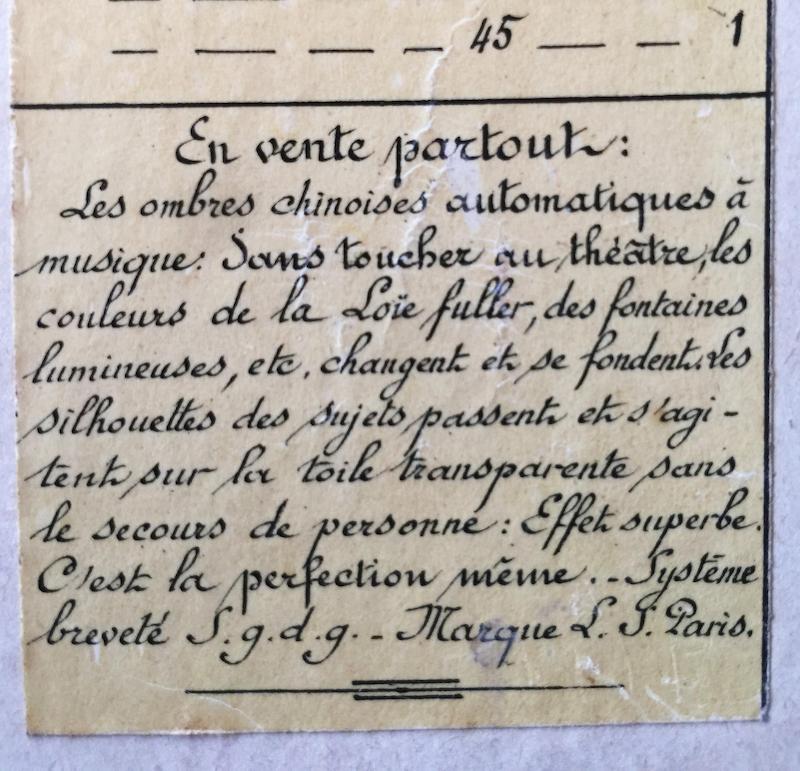 — — — — — 45 — — 1
En vente partout :
Les ombres chinoises automatiques à
musique: Sans toucher au théâtre, les
couleurs de la Loïe fuller, des fontaines
lumineuses, etc. changent et se fondent. Les
silhouettes des sujets passent et s'agi-
tent sur la toile transparente sans
le secours de personne : Effet superbe.
C'est la perfection même. - Système
breveté S.g.d.g. - Marque L. S. Paris.